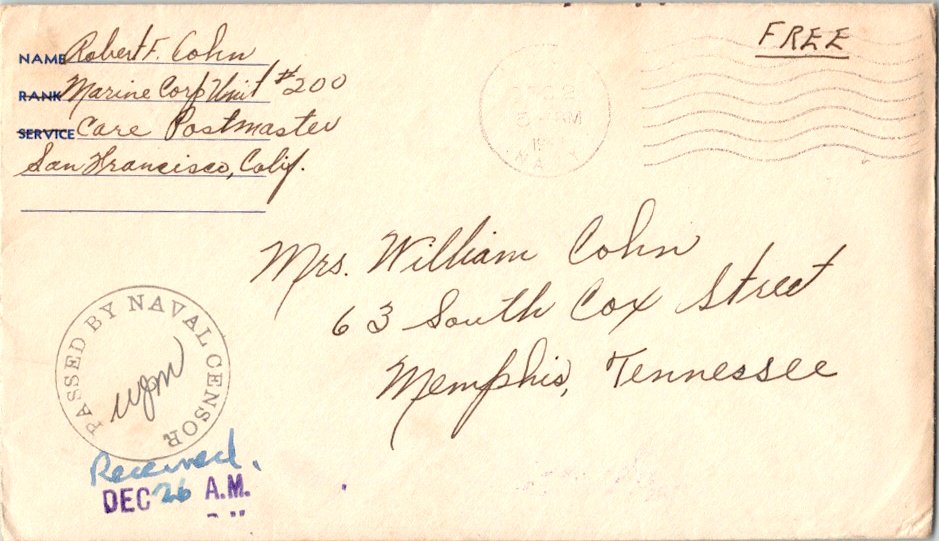 NAME Robert F. Cohn
RANK Marine Corp Unit #200
SERVICE Care Postmaster
San Francisco, Calif.
FREE
Mrs. William Cohn
63 South Cox Street
Memphis, Tennessee
PASSED BY NAVAL CENSOR
wjm
Received.
DEC 26 A.M.